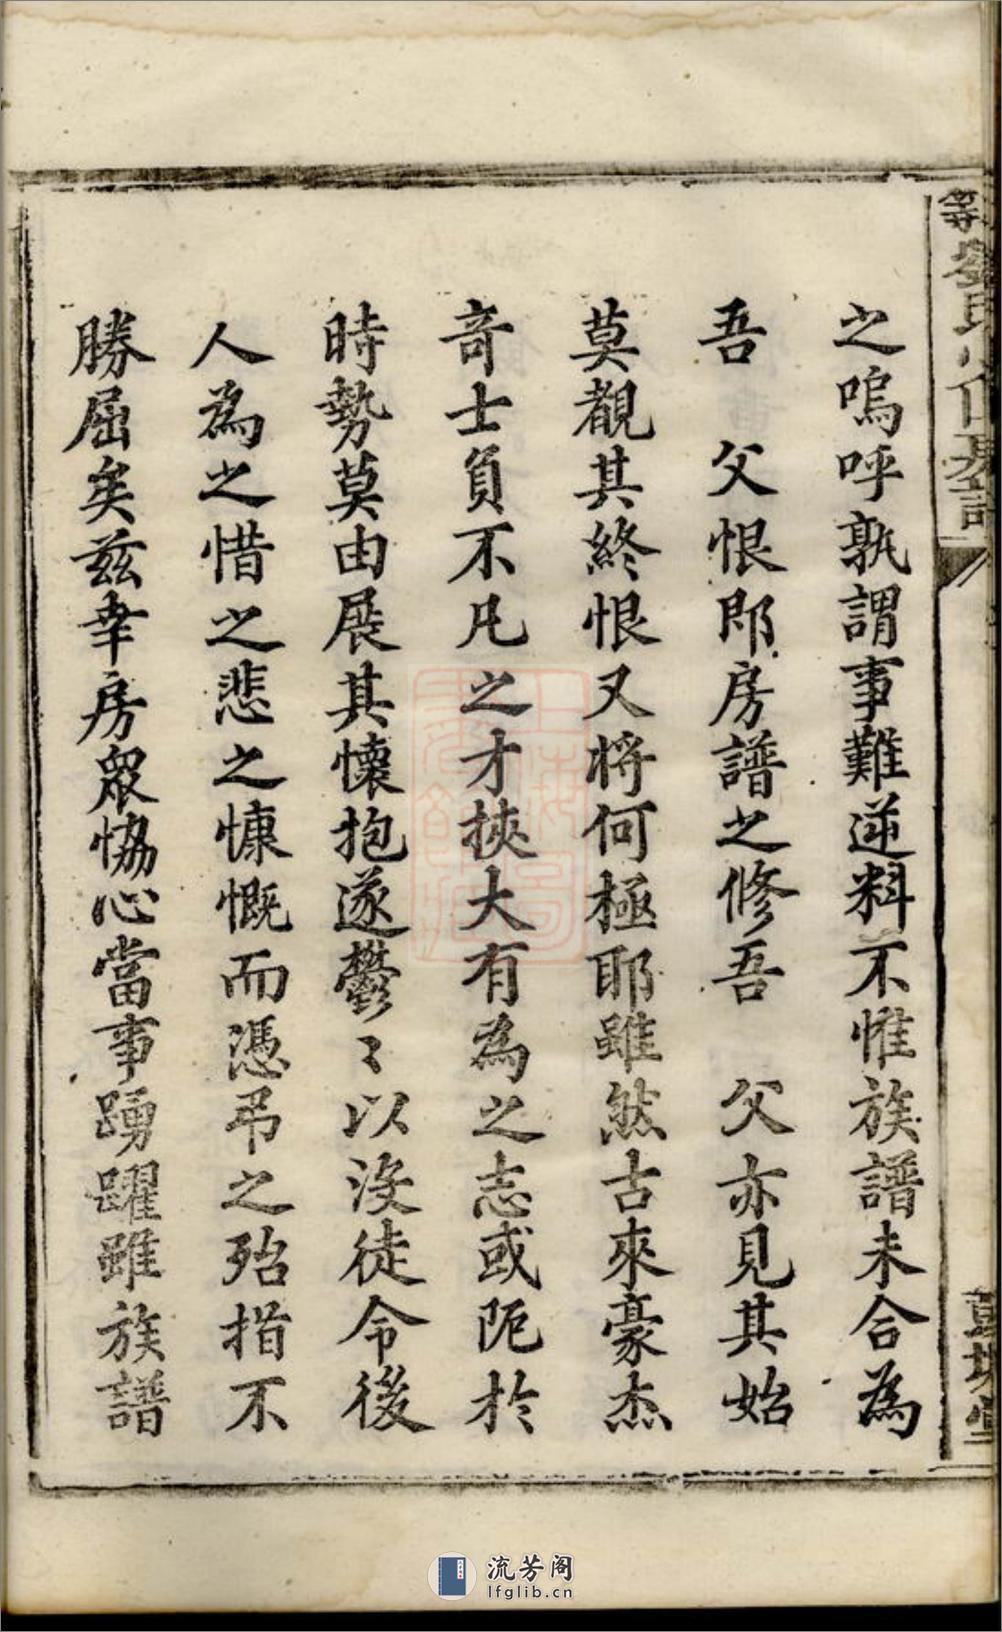 之嗚呼孰謂事難逆料不惟族譜未合為
吾　父恨即房譜之修吾　父亦見其始
莫覩其終恨又將何極耶雖然古來豪杰
奇士負不凡之才挾大有為之志或阨於
時勢莫由展其懷抱遂鬱〻以沒徒令後
人為之惜之悲之慷慨而憑弔之殆指不
勝屈矣兹幸房眾恊心當事踴躍雖族譜
流芳阁
lfglib.cn